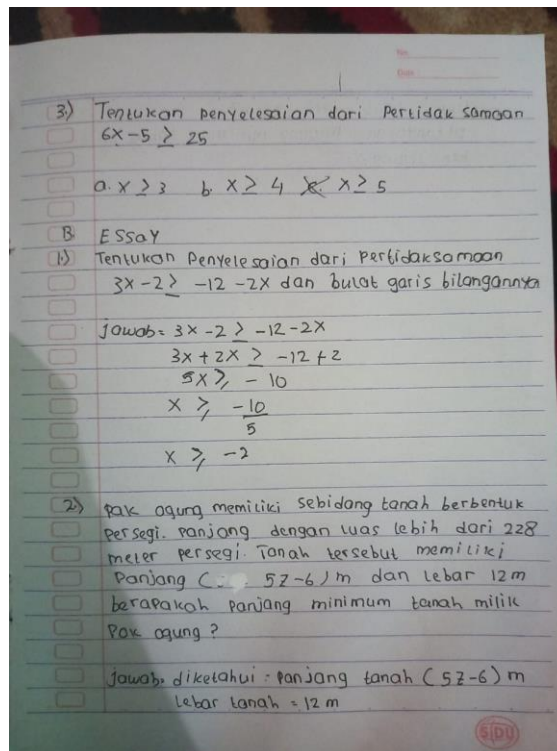 No.
Date
3.) Tentukan penyelesaian dari Pertidak samaan
6x - 5 ≥ 25
a. x ≥ 3 b. x ≥ 4 c. x ≥ 5
B ESSAY
1.) Tentukan Penyelesaian dari Pertidaksamaan
3x - 2 ≥ -12 - 2x dan bulat garis bilangannya
jawab = 3x - 2 ≥ -12 - 2x
3x + 2x ≥ -12 + 2
5x ≥ - 10
x ≥ -10/5
x ≥ -2
2) pak agung memiliki sebidang tanah berbentuk
persegi. panjang dengan luas lebih dari 228
meter persegi. Tanah tersebut memiliki
Panjang ( 5z-6) m dan lebar 12 m
berapakah panjang minimum tanah milik
Pak agung ?
jawab. diketahui : panjang tanah (5z-6) m
Lebar tanah = 12 m
SIDU